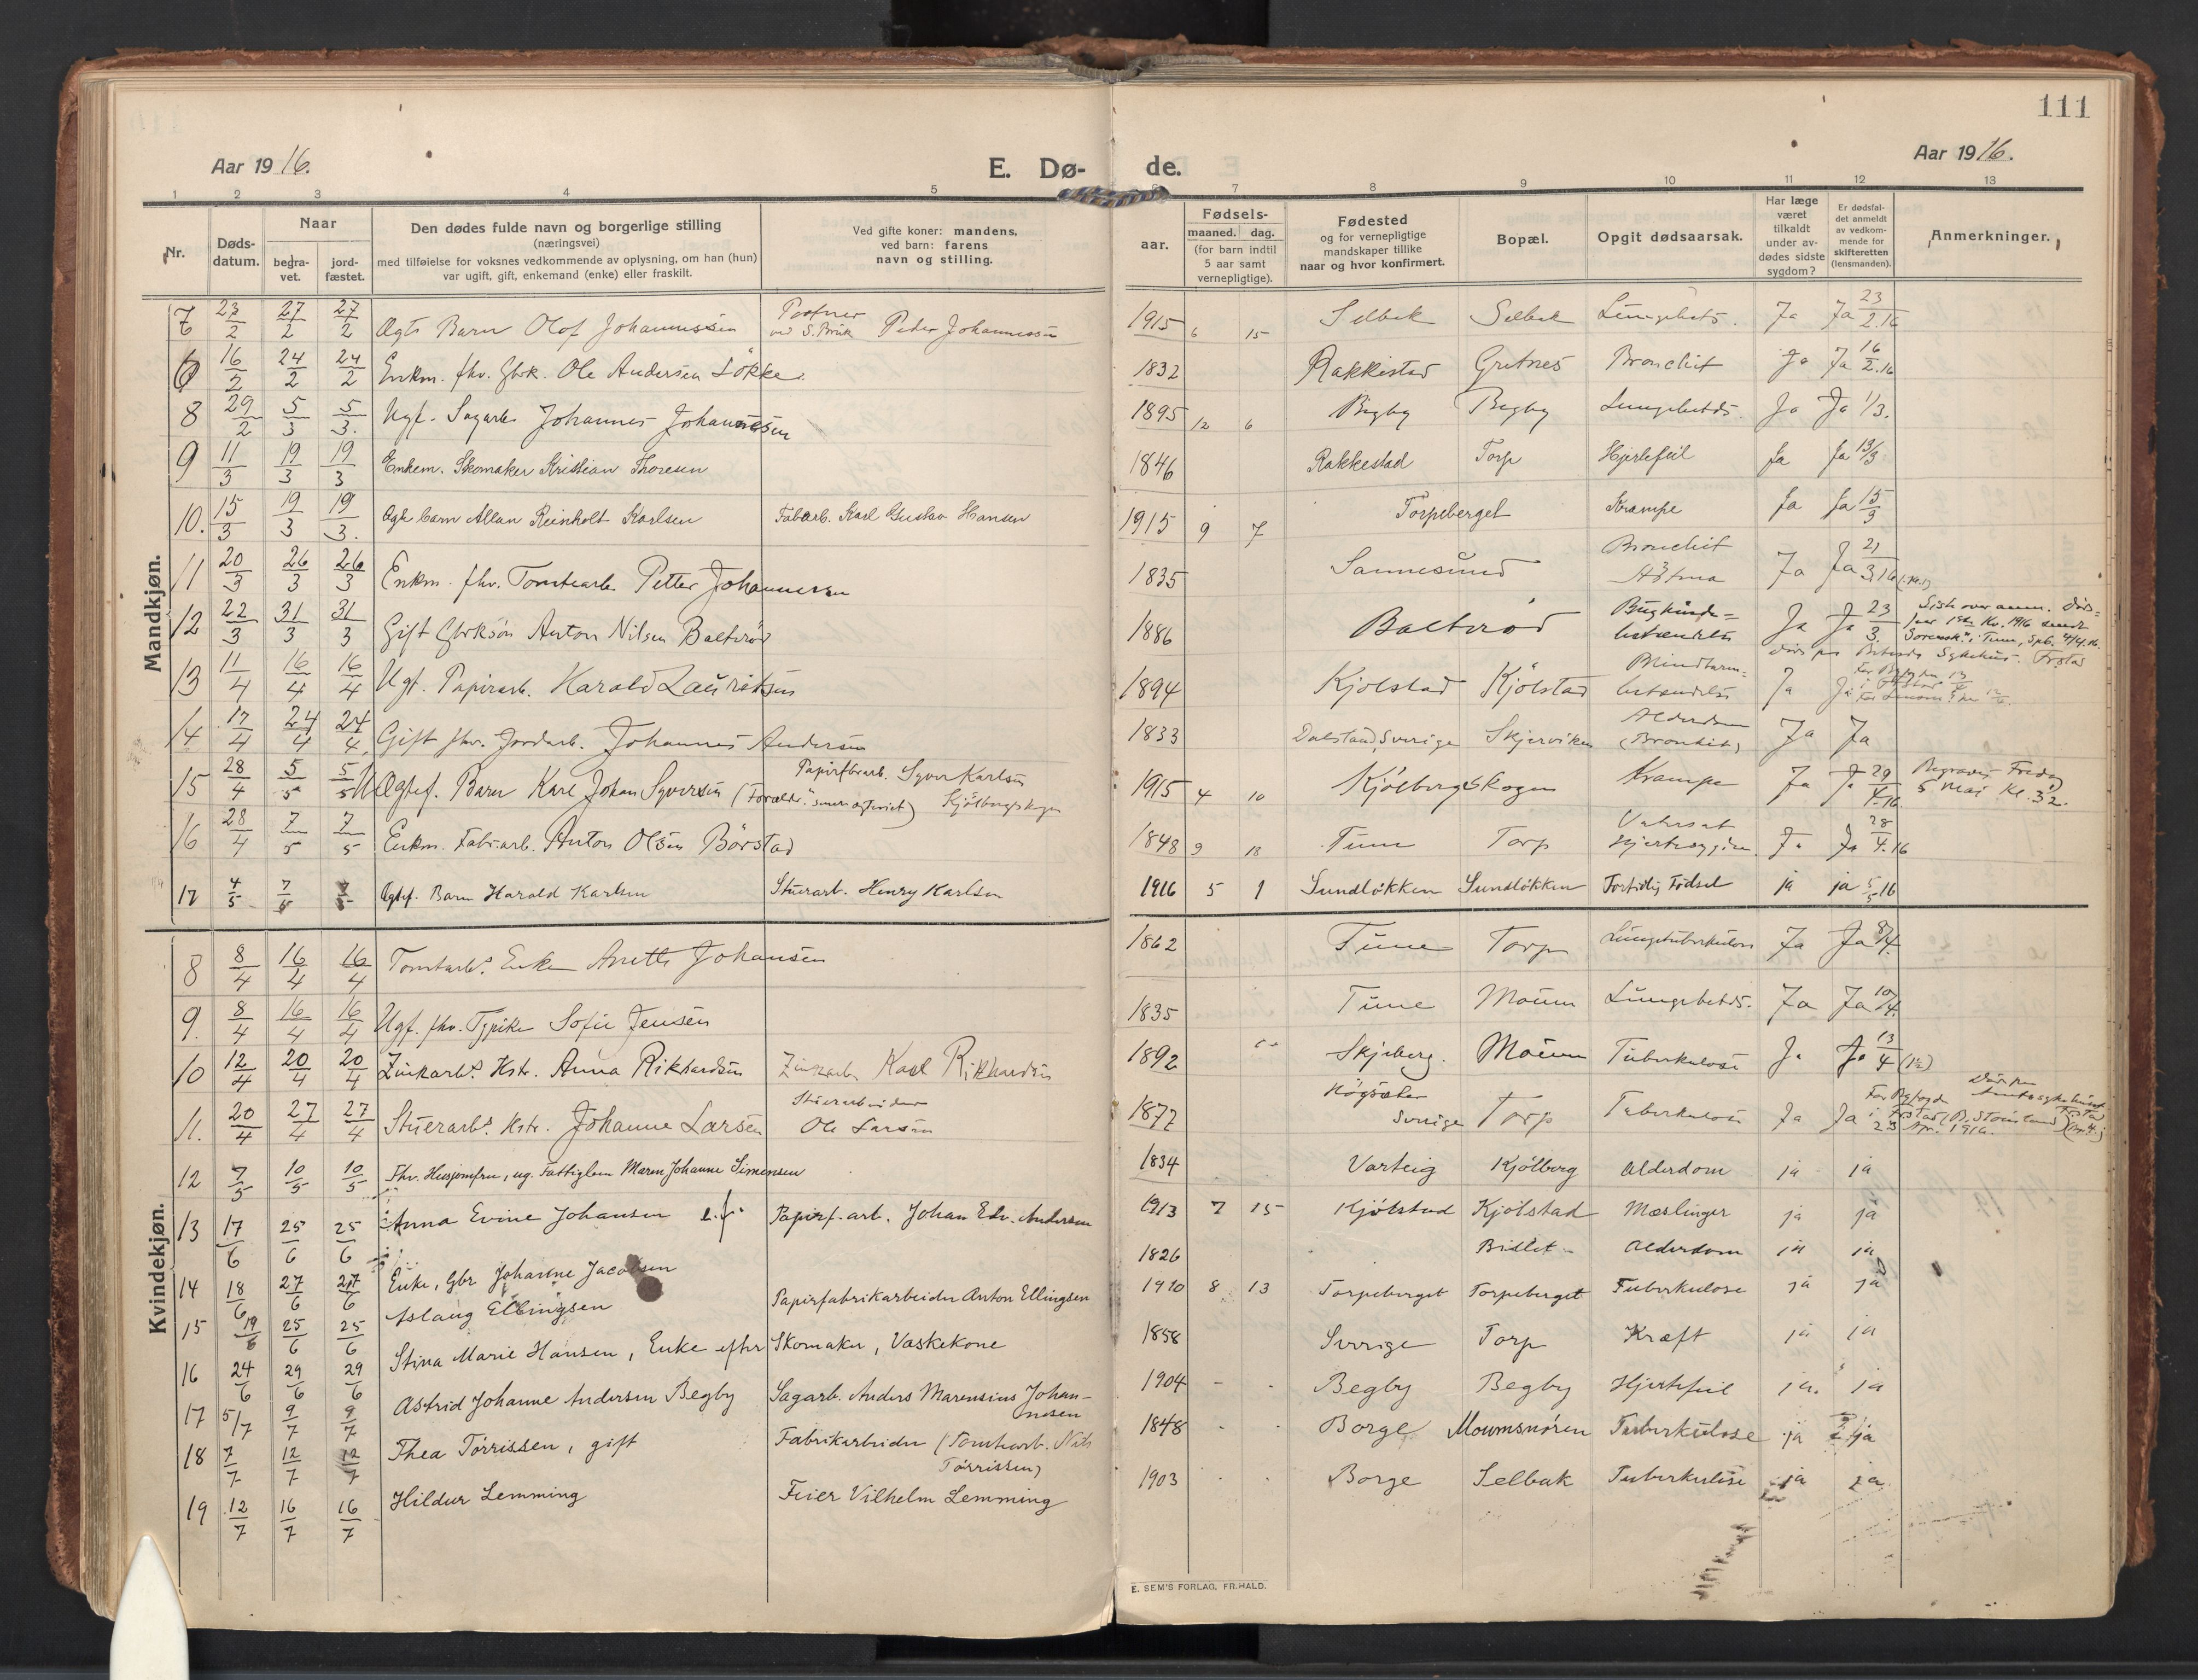 111
Aar 1916.
E. Dø-
de.
Aar 1916.
1 2 3 4 5 6 7 8 9 10 11 12 13
Nr.
Døds-
datum.
Naar
begra-
vet.
jord-
fæstet.
Den dødes fulde navn og borgerlige stilling
(næringsvei)
med tilføielse for voksnes vedkommende av oplysning, om han (hun)
var ugift, gift, enkemand (enke) eller fraskilt.
Ved gifte koner: mandens,
ved barn: farens
navn og stilling.
Fødsels-
aar.
maaned. dag.
(for barn indtil
5 aar samt
vernepligtige).
Fødested
og for vernepligtige
mandskaper tillike
naar og hvor konfirmert.
Bopæl.
Opgit dødsaarsak.
Har læge
været
tilkaldt
under av-
dødes sidste
sygdom?
Er dødsfal-
det anmeldt
av vedkom-
mende for
skifteretten
(lensmanden).
Anmerkninger.
Mandkjøn.
7 23/2 27/2 27/2 Ægte Barn Olof Johannessen ved S. Bruk Peder Johannessen 1915 6 15 Selbak Selbak Lungebets. Ja Ja 23/2.16
6 16/2 24/2 24/2 Enkm. fhv. Gbrk. Ole Andersen Løkke. 1832 Rakkestad Gretnes Bronchit Ja Ja 16/2.16
8 29/2 5/3 5/3. Ugf. Sagarb. Johannes Johannesen 1895 12 6 Begby Begby Lungebetds. Ja Ja 1/3.
9 11/3 19/3 19/3 Enkem. Skomaker Kristian Thoresen 1846 Rakkestad Torp Hjertefeil Ja Ja 13/3
10. 15/3 19/3 19/3. Ægte barn Allan Reinholt Karlsen Fabarb. Karl Gustav Hansen 1915 9 7 Torpeberget Krampe Ja Ja 15/3
11 20/3 26/3 26/3 Enkm. fhv. Tomtearb. Petter Johannesen 1835 Sannesund Bronchit Astma Ja Ja 21/3.16
12 22/3 31/3 31/3 Gift Gbrksøn Anton Nilsen Balterød 1886 Balterød Bughinde-
betændelse Ja Ja 23/3.
13 11/4 16/4 16/4 Ugf. Papirarb. Harald Lauritsen 1894 Kjølstad Kjølstad Blindtarm-
betændelse Ja Ja
14 17/4 24/4 24/4. Gift fhv. Jordarb. Johannes Andersen 1833 Dalsland, Sverige Skjærviken Alderdom
(Bronkit) Ja Ja
15 28/4 5/5 5/5 Uægtef. Barn Karl Johan Syversen Papirfbrarb. Syver Karlsen
Kjølbergskogen 1915 4 10 Kjølbergskogen Krampe Ja Ja 29/4.16 Begraves Fredag
5 Mai Kl. 3½.
16 28/4 7/5 7/5 Enkm. Fabr.arb. Anton Olsen Børstad 1848 9 18 Tune Torp Vatersot
Ja Ja 28/4.16
17 4/5 7/5 7/5 Ægtef. Barn Harald Karlsen Stuerarb. Henry Karlsen 1916 5 1 Sundløkken Sundløkken Fortidlig Fødsel ja ja 5/5 16
Kvindekjøn.
8 8/4 16/4 16/4 Tomtarb.s Enke Anette Johansen 1862 Tune Torp Lungetuberkulose Ja Ja 8/4.
9. 8/4 16/4 16/4 Ugf. fhv. Tjpike Sofie Jensen 1835 Tune Moum Lungebetds. Ja Ja 10/4.
10 12/4 20/4 20/4 Zinkarb.s Hstr. Anna Rikhardsen Zinkarb. Karl Rikhardsen 1892 Skjeberg. Moum Tuberkulose Ja Ja 13/4
11. 20/4 27/4 27/4 Stuerarb.s Hstr. Johanne Larsen Stuerarbeider
Ole Larsen 1877 Högsäter
Sverige Torp Tuberkulose Ja Ja
12 7/5 10/5 10/5 Fhv. Husjomfru, ug. Fattiglem Maren Johanne Simensen 1834 Varteig Kjølberg Alderdom ja ja
13 17/6 25/6 25/6 Anna Evine Johansen Papirf.arb. Johan Edv. Andersen 1913 7 15 Kjølstad Kjølstad Mæslinger ja ja
14 18/6 27/6 27/6 Enke, Gbr Johanne Jacobsen 1826 Alderdom ja ja
15 19/6 25/6 25/6 Aslaug Ellingsen Papirfabrikarbeider Anton Ellingsen 1910 8 13 Torpeberget Torpeberget Tuberkulose ja ja
16 24/6 29/6 29/6 Stina Marie Hansen, Enke efter Skomaker, Vaskekone 1858 Sverige Torp Kræft ja ja
17 5/7 9/7 9/7 Astrid Johanne Andersen Begby Sagarb. Anders Marensius Johan-
nesen 1904 Begby Begby Hjertefeil ja. ja
18 7/7 12/7 12/7 Thea Tørrissen, gift Fabrikarbeider (Tomtearb. Nils
Tørrissen) 1848 Borge Moumsnøren Tuberkulose ja ja
19 12/7 16/7 16/7 Hildur Lemming Feier Vilhelm Lemming 1903 Borge Selbak Tuberkulose ja ja
E. SEM'S FORLAG, FR.HALD.